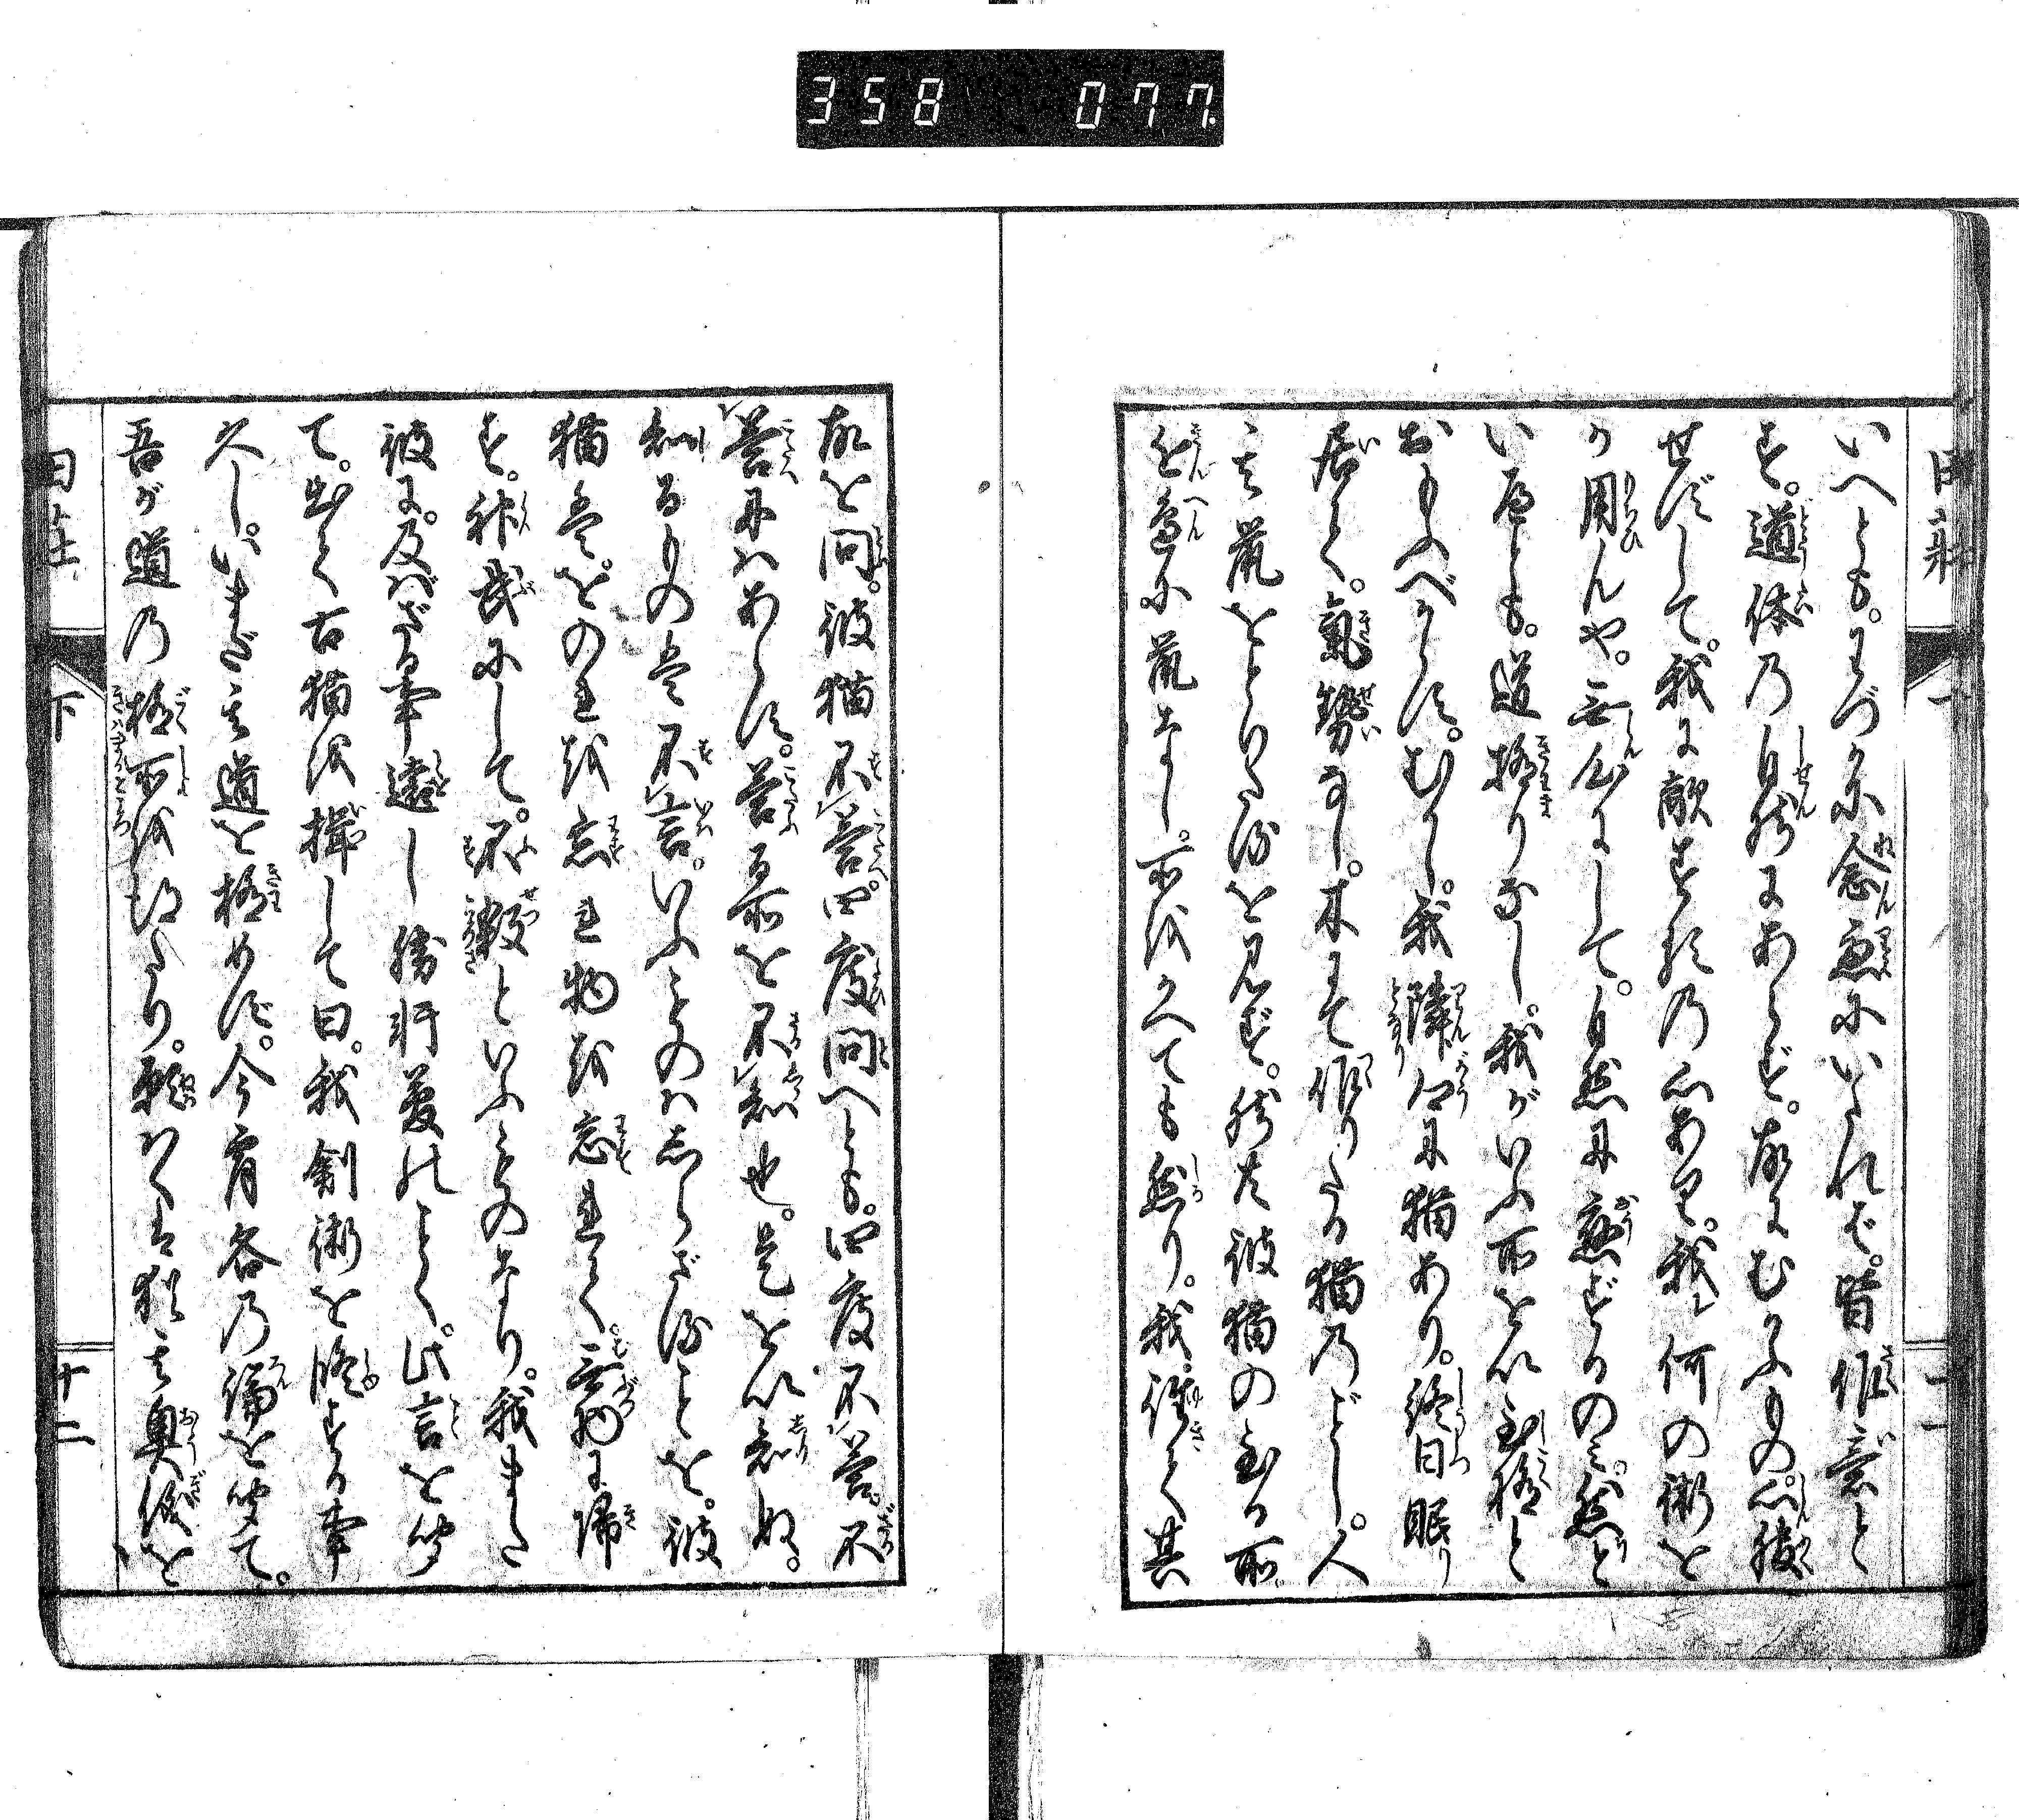 いへとも。わづかに念慮にいたれば。皆作意と
す。道体乃自然にあらず。故にむかふもの。心服
せずして。我に敵する乃心あり。我レ何の術を
か用んや。無心にして。自然に應ずるのミ。然ど
いへども。道極りなし。我がいふ所を以至極と
おもふべからず。むかし。我隣郷に猫あり。終日眠り
居て。氣勢なし。木にて作りたる猫乃ごとし。人
其鼠をとりたるを見ず。然共彼猫の至る所
近邊に鼠なし。所をかへても然り。我往て其
故を問。彼猫不答。四度問へとも。四度不答。不
答にはあらず。答る所を不知也。是を以知ぬ。
知るものは不言。いふものはしらざることを。彼
猫は。をのれを忘れ物を忘れて。無物に帰
す。神武にして。不殺といふものなり。我また
彼に。及ばざる事遠し勝軒夢のごとく。此言を聞
て。出て古猫を揖して曰。我剣術を修する事
久し。いまだ其道を極めず。今宵各乃論を聞て。
吾が道乃極所を得たり。願はくは猶其奥儀を
下
十二
358 077